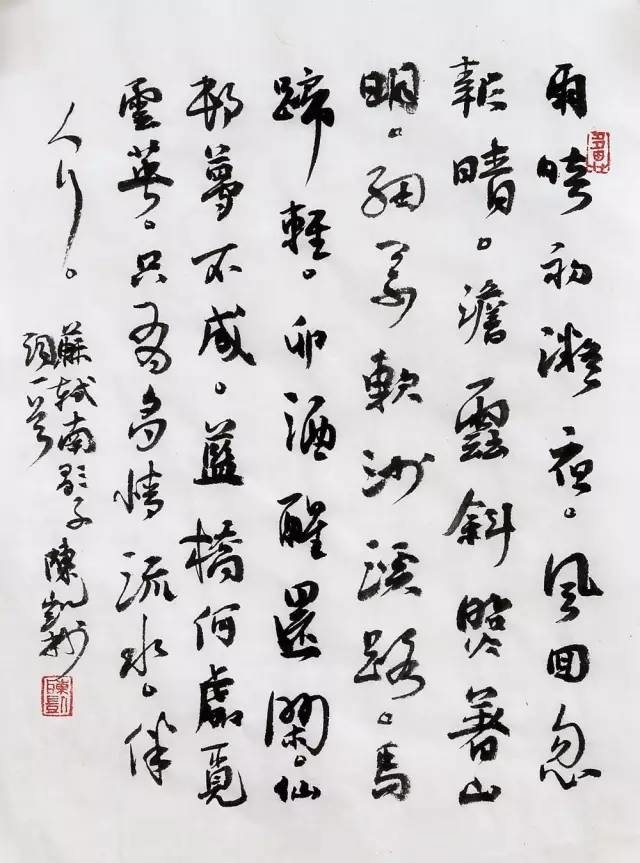 雨暗初凝夜。風回忽
報晴。澹雲斜照著山
明。細草軟沙溪路。馬
蹄輕。卯酒醒還閑。仙
邨夢不成。藍橋何處覓
雲英。只有多情流水。伴
人行。
蘇軾南歌子 陳
一首